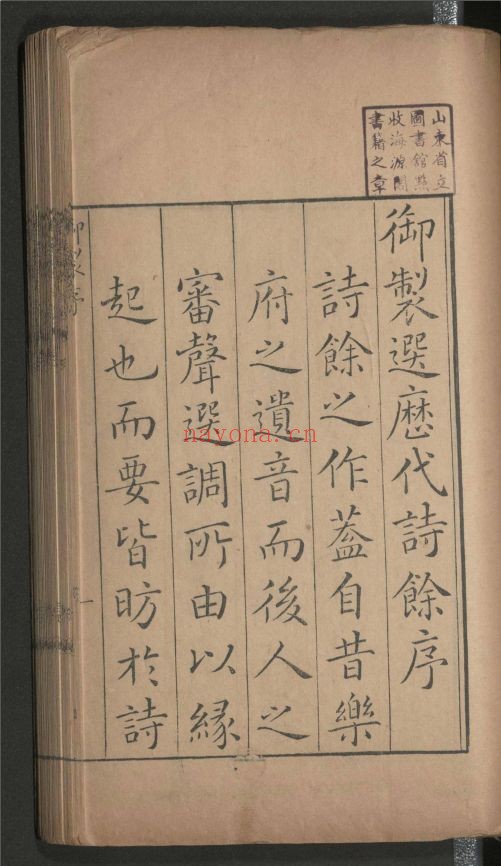 山東省立
圖書館點
收海源閣
書籍之章
御製選歷代詩餘序
詩餘之作蓋自昔樂
府之遺音而後人之
審聲選調所由以緣
起也而要皆昉於詩
御製序
一
nayona.cn